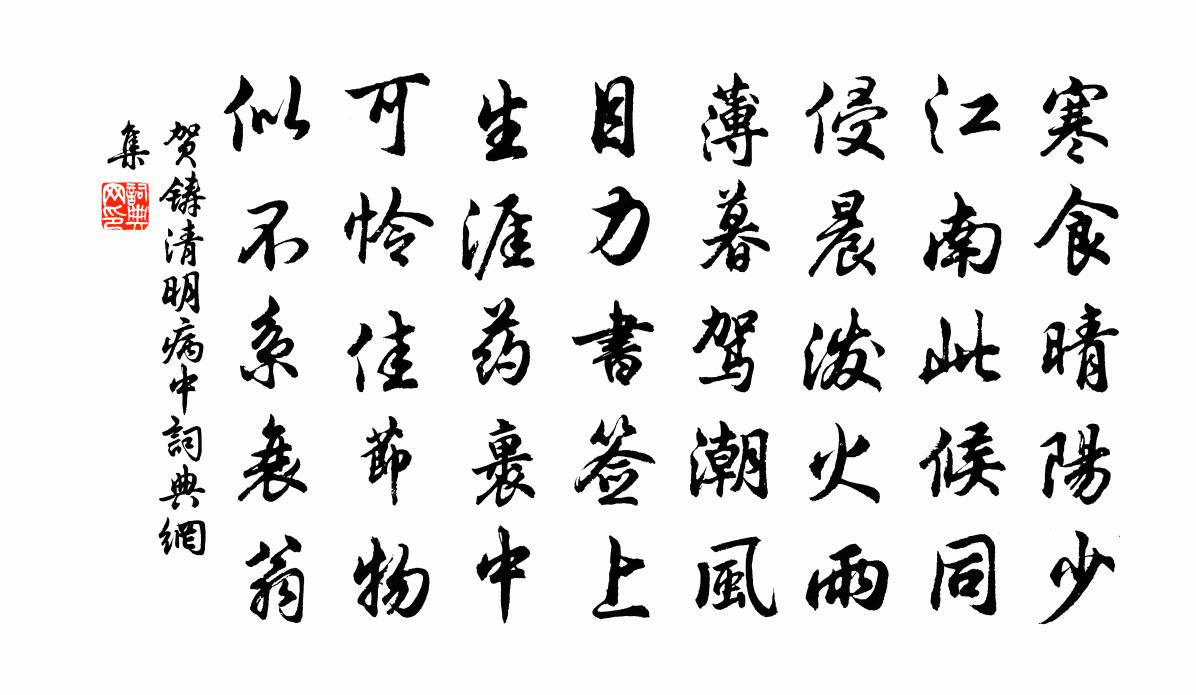 寒食晴陽少
江南此候同
侵晨潑火雨
薄暮駕潮風
目力書签上
生涯药裹中
可怜佳節物
似不系衰翁
贺鑄清明病中詞典網
集
詞典
网印